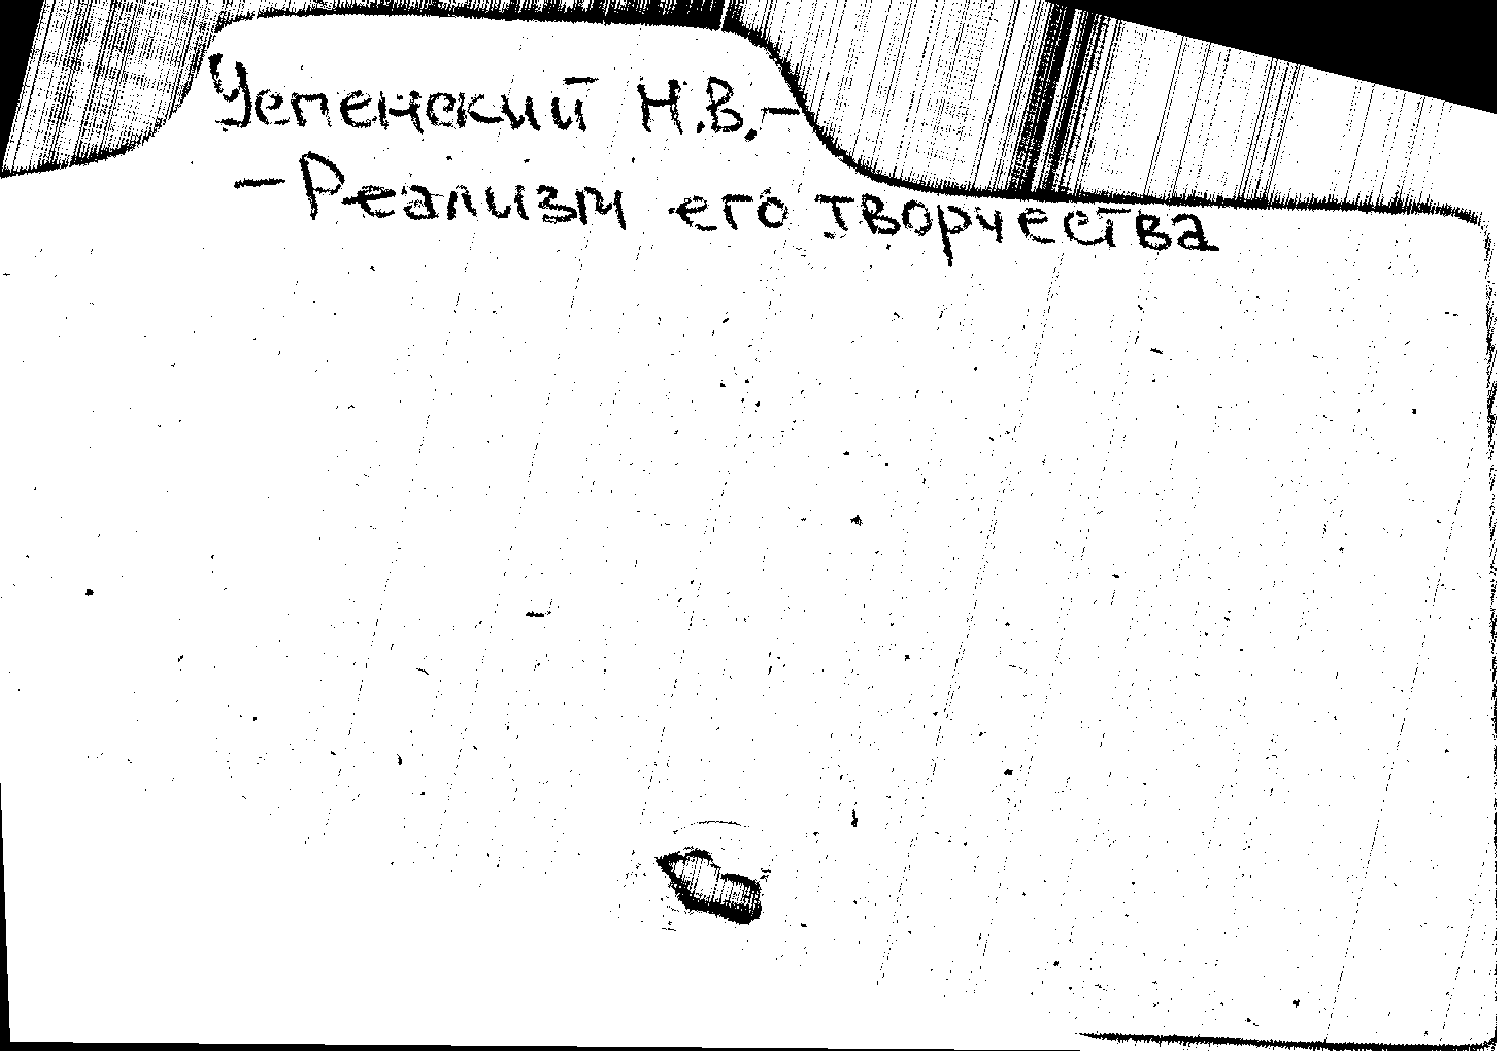 Успенский Н.В.-
-Реализм его творчества